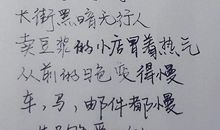 长街黑暗无行人
卖豆浆的小店冒着热气
从前的日色变得慢
车,马,邮件都慢